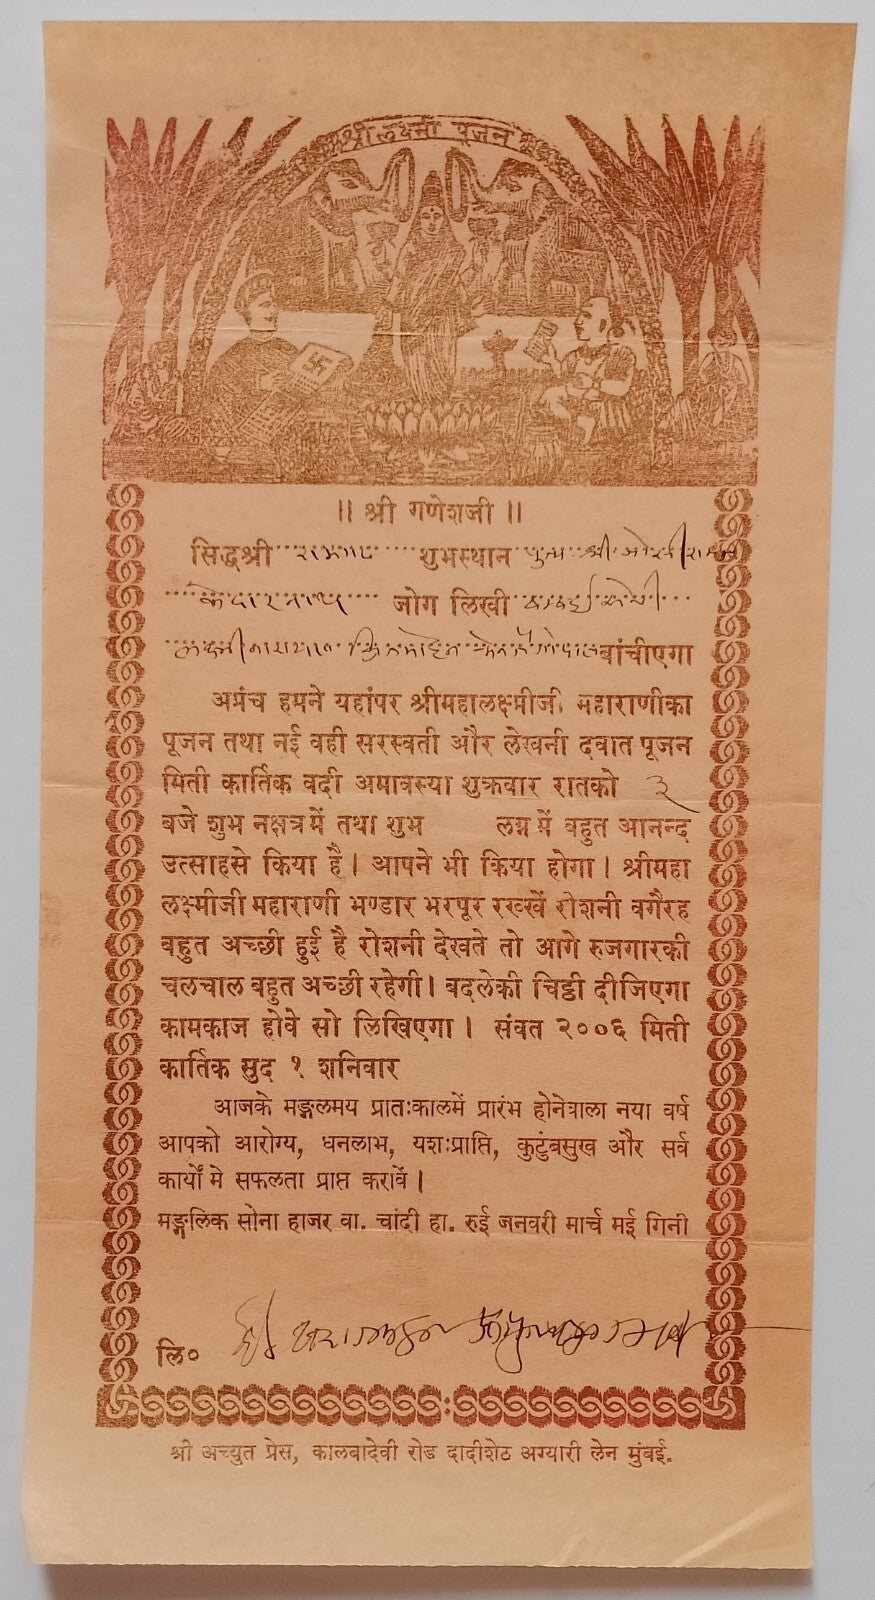 श्री लक्ष्मी पूजन
॥ श्री गणेशजी ॥
सिद्धश्री शुभस्थान श्री
केदारनाथ जोग लिखी
बांचीएगा
अप्रंच हमने यहांपर श्रीमहालक्ष्मीजी महाराणीका
पूजन तथा नई वही सरस्वती और लेखनी दवात पूजन
मिती कार्तिक वदी अमावस्या शुक्रवार रातको ३
बजे शुभ नक्षत्र में तथा शुभ लग्न में बहुत आनन्द
उत्साहसे किया है। आपने भी किया होगा। श्रीमहा
लक्ष्मीजी महाराणी भण्डार भरपूर रख्खें रोशनी वगैरह
बहुत अच्छी हुई है रोशनी देखते तो आगे रुजगारकी
चलचाल बहुत अच्छी रहेगी। बदलेकी चिठ्ठी दीजिएगा
कामकाज होवे सो लिखिएगा। संवत २००६ मिती
कार्तिक सुद १ शनिवार
आजके मङ्गलमय प्रातःकालमें प्रारंभ होनेवाला नया वर्ष
आपको आरोग्य, धनलाभ, यशःप्राप्ति, कुटुंबसुख और सर्व
कार्यों मे सफलता प्राप्त करावें।
मङ्गलिक सोना हाजर वा. चांदी हा. रुई जनवरी मार्च मई गिनी
लि०
श्री अच्युत प्रेस, कालबादेवी रोड दादीशेठ अग्यारी लेन मुंबई.